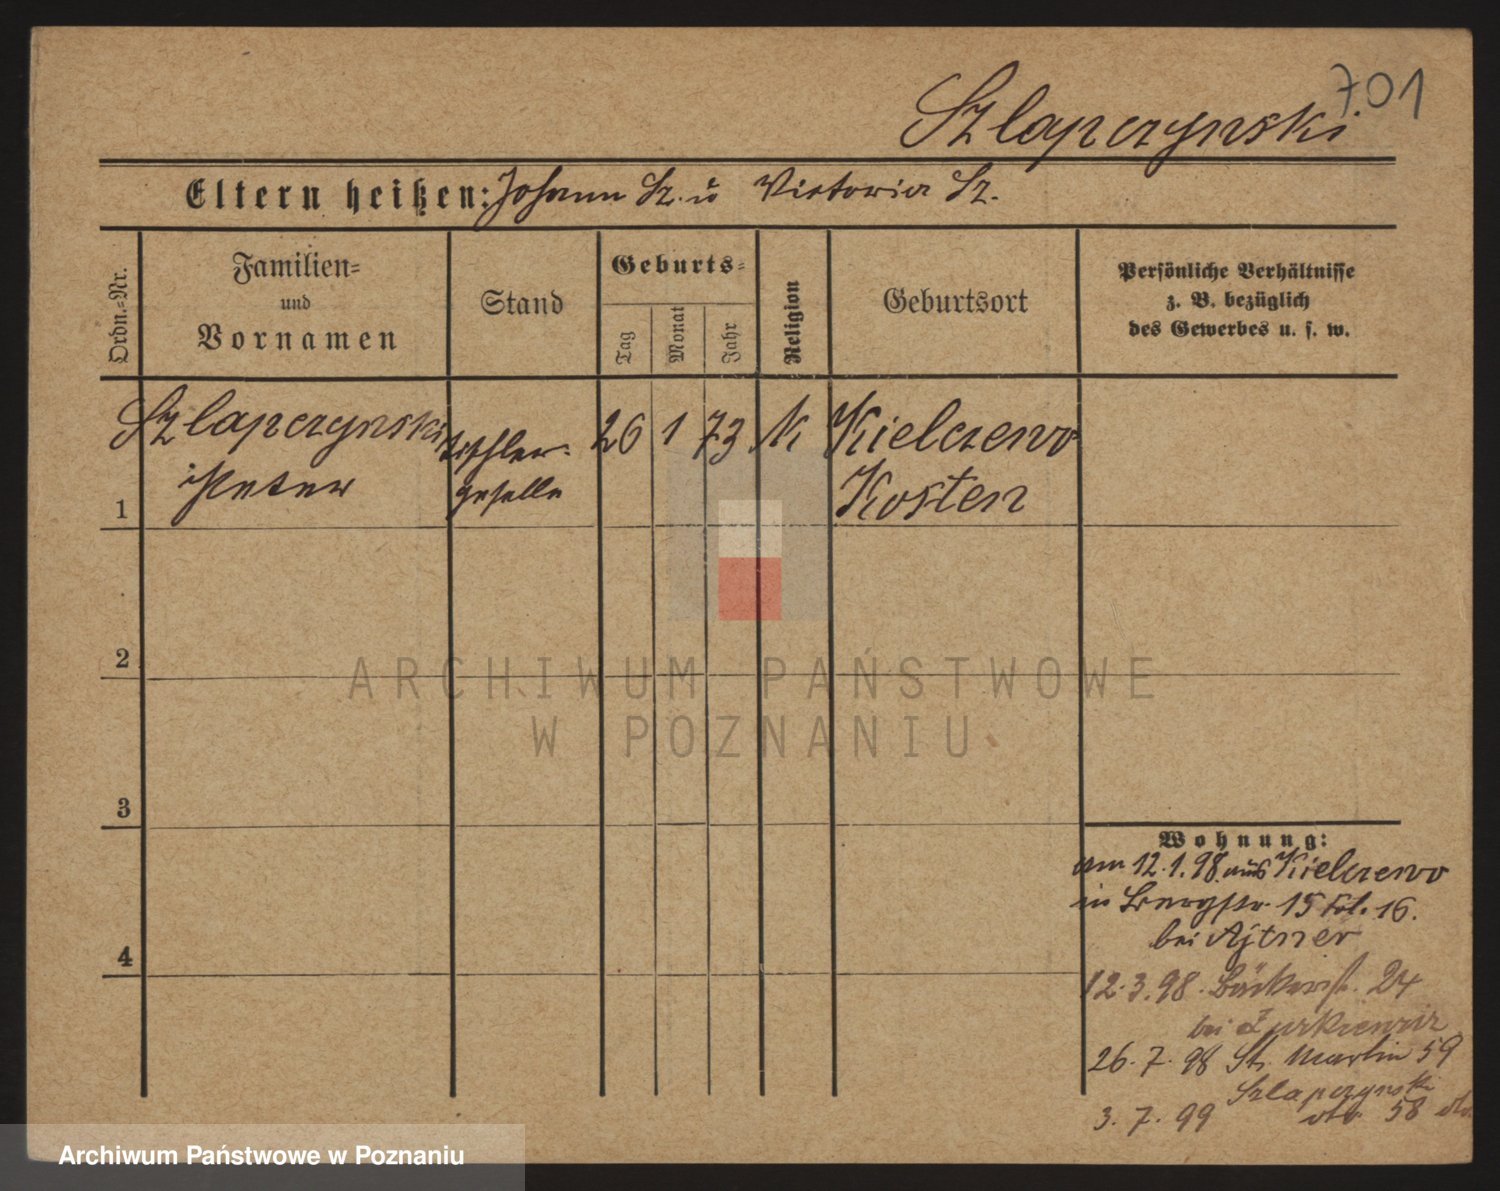 701
Szlapczynski
Eltern heißen: Johann Sz. u Victoria Sz.
Ordn.-Nr.
Familien-
und
Vornamen
Stand
Geburts-
Tag
Monat
Jahr
Religion
Geburtsort
Persönliche Verhältnisse
z. B. bezüglich
des Gewerbes u. s. w.
Szlapczynski Tischler- 26 1 73 K Kielczewo
1 Peter geselle Kosten
2
3
4
ARCHIWUM PAŃSTWOWE
W POZNANIU
Wohnung:
am 12.1.98. aus Kielczewo
in Bergstr. 15 Fol. 16.
bei Ajtner
12.3.98. Bäckerst. 24
bei
26.7.98 St. Martin 59
Szlapczynski
3.7.99 dto 58 dto
Archiwum Państwowe w Poznaniu